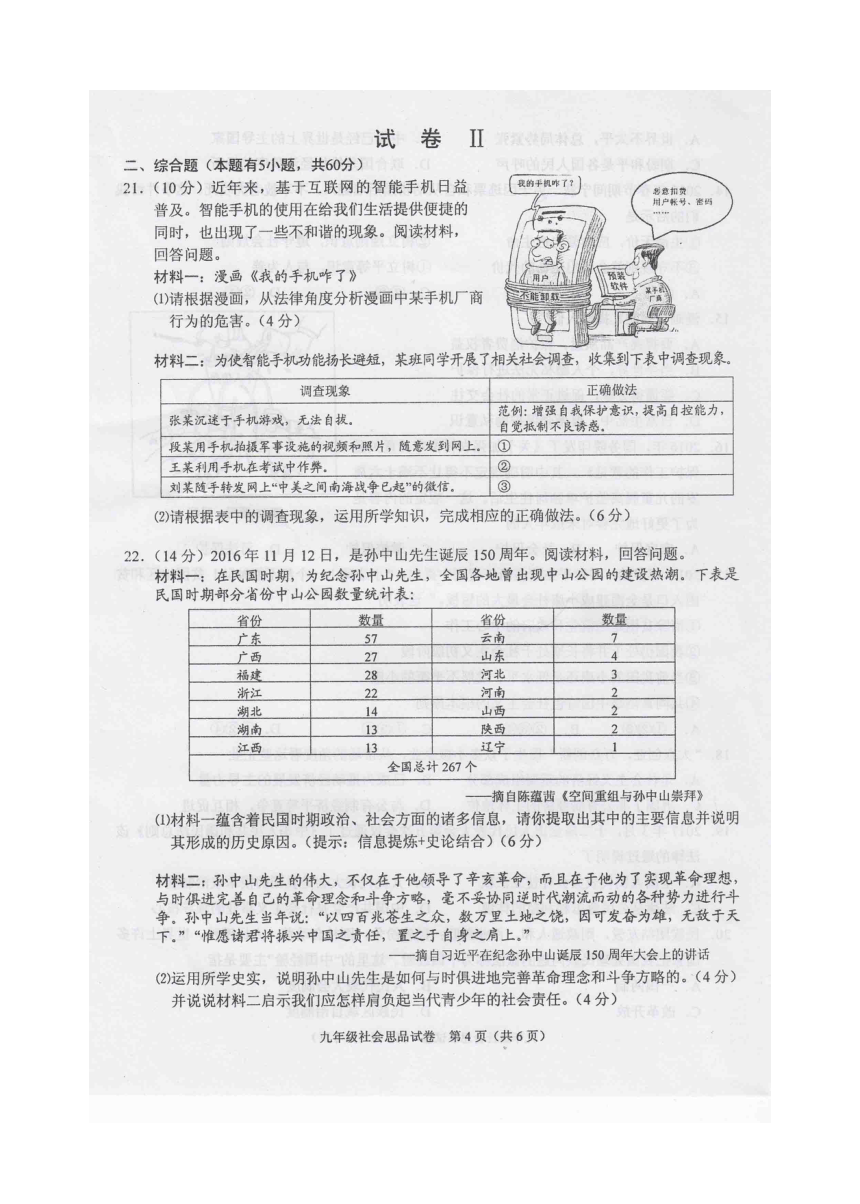 试 卷 Ⅱ
二、综合题（本题有5小题，共60分）
21.（10分）近年来，基于互联网的智能手机日益
普及。智能手机的使用在给我们生活提供便捷的
同时，也出现了一些不和谐的现象。阅读材料，
回答问题。
材料一：漫画《我的手机咋了》
⑴请根据漫画，从法律角度分析漫画中某手机厂商
行为的危害。（4分）
我的手机咋了？
恶意扣费
用户帐号、密码
……
用户
不能卸载
预装
软件
某手机
厂商
材料二：为使智能手机功能扬长避短，某班同学开展了相关社会调查，收集到下表中调查现象。
调查现象 正确做法
张某沉迷于手机游戏，无法自拔。 范例：增强自我保护意识，提高自控能力，
自觉抵制不良诱惑。
段某用手机拍摄军事设施的视频和照片，随意发到网上。 ①
王某利用手机在考试中作弊。 ②
刘某随手转发网上“中美之间南海战争已起”的微信。 ③
⑵请根据表中的调查现象，运用所学知识，完成相应的正确做法。（6分）
22.（14分）2016年11月12日，是孙中山先生诞辰150周年。阅读材料，回答问题。
材料一：在民国时期，为纪念孙中山先生，全国各地曾出现中山公园的建设热潮。下表是
民国时期部分省份中山公园数量统计表：
省份 数量 省份 数量
广东 57 云南 7
广西 27 山东 4
福建 28 河北 3
浙江 22 河南 2
湖北 14 山西 2
湖南 13 陕西 2
江西 13 辽宁 1
全国总计267个
——摘自陈蕴茜《空间重组与孙中山崇拜》
⑴材料一蕴含着民国时期政治、社会方面的诸多信息，请你提取出其中的主要信息并说明
其形成的历史原因。（提示：信息提炼+史论结合）（6分）
材料二：孙中山先生的伟大，不仅在于他领导了辛亥革命，而且在于他为了实现革命理想，
与时俱进完善自己的革命理念和斗争方略，毫不妥协同逆时代潮流而动的各种势力进行斗
争。孙中山先生当年说：“以四百兆苍生之众，数万里土地之饶，因可发奋为雄，无敌于天
下。”“惟愿诸君将振兴中国之责任，置之于自身之肩上。”
——摘自习近平在纪念孙中山诞辰150周年大会上的讲话
⑵运用所学史实，说明孙中山先生是如何与时俱进地完善革命理念和斗争方略的。（4分）
并说说材料二启示我们应怎样肩负起当代青少年的社会责任。（4分）
九年级社会思品试卷 第4页（共6页）